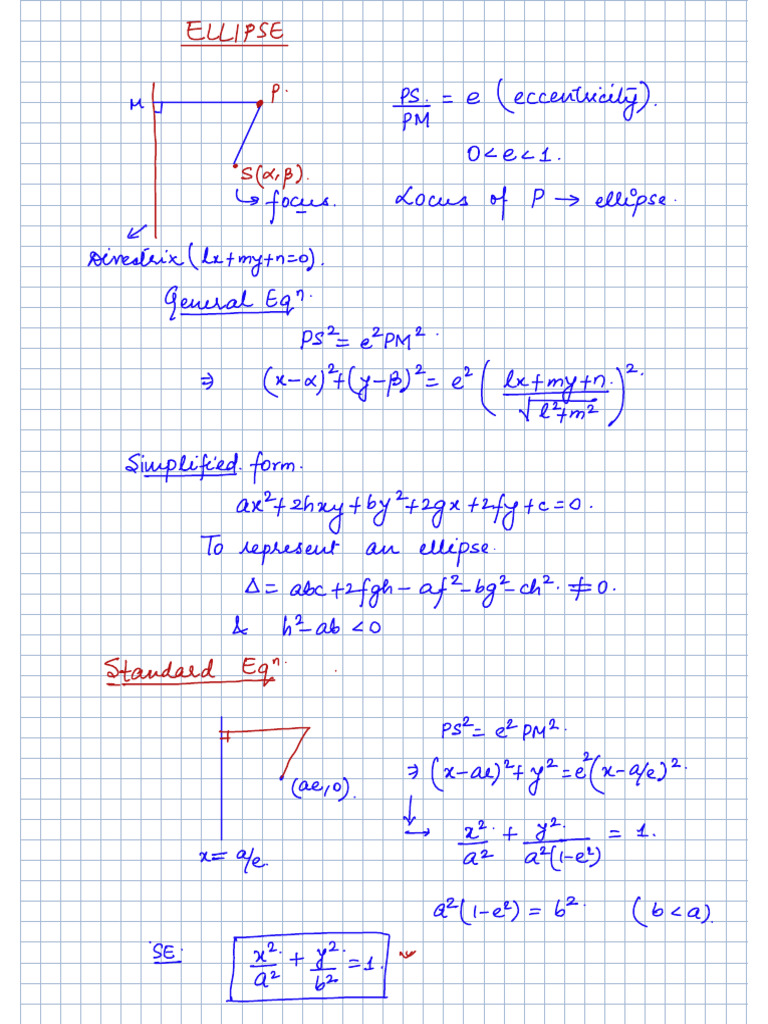 ELLIPSE
M P.
PS/PM = e (eccentricity).
0<e<1.
S(α,β).
↳ focus.
Locus of P → ellipse.
Directrix (lx+my+n=0).
General Eqⁿ.
PS² = e²PM².
⇒ (x-α)²+(y-β)² = e² ( (lx+my+n)/√(l²+m²) )².
Simplified form.
ax²+2hxy+by²+2gx+2fy+c=0.
To represent an ellipse.
Δ = abc+2fgh-af²-bg²-ch² ≠ 0.
& h²-ab<0
Standard Eqⁿ.
PS² = e²PM².
⇒ (x-ae)²+y² = e²(x-a/e)².
(ae,0).
→ x²/a² + y²/a²(1-e²) = 1.
x = a/e.
a²(1-e²) = b². (b<a).
SE. x²/a² + y²/b² = 1.